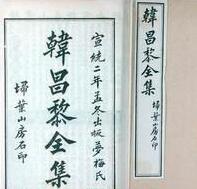 宣統二年孟冬出版夢梅氏
韓昌黎全集
掃葉山房石印
韓昌黎全集
掃葉山房石印